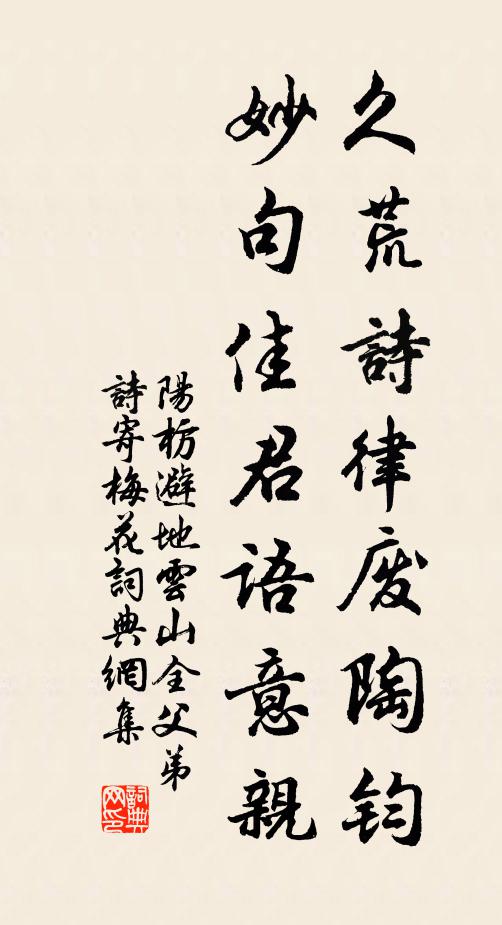 久荒詩律废陶钧
妙句佳君語意親
陽枋避地雲山全父弟
詩寄梅花詞典網集
詞典
网印